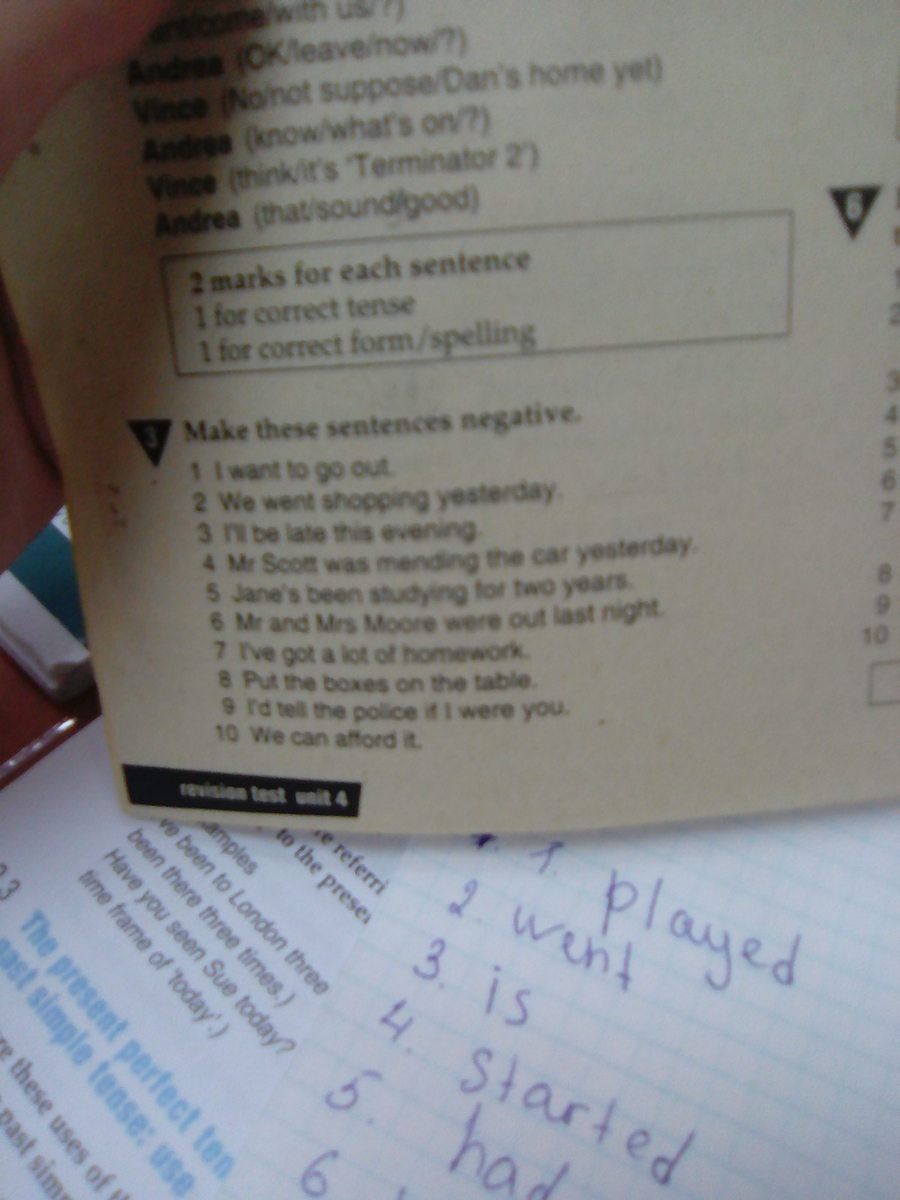 with us/?)
Andrea (OK/leave/now/?)
Vince (No/not suppose/Dan's home yet)
Andrea (know/what's on/?)
Vince (think/it's 'Terminator 2')
Andrea (that/sound/good)
2 marks for each sentence
1 for correct tense
1 for correct form/spelling
3 Make these sentences negative.
1 I want to go out.
2 We went shopping yesterday.
3 I'll be late this evening.
4 Mr Scott was mending the car yesterday.
5 Jane's been studying for two years.
6 Mr and Mrs Moore were out last night.
7 I've got a lot of homework.
8 Put the boxes on the table.
9 I'd tell the police if I were you.
10 We can afford it.
revision test unit 4
6
2
3
4
5
6
7
8
9
10
to the
been to London three
been there three times.)
Have you seen Sue today?
time frame of 'today'.)
The present perfect
past simple tense: use
these uses of
past
1. played
2. went
3. is
4. started
5. had
6